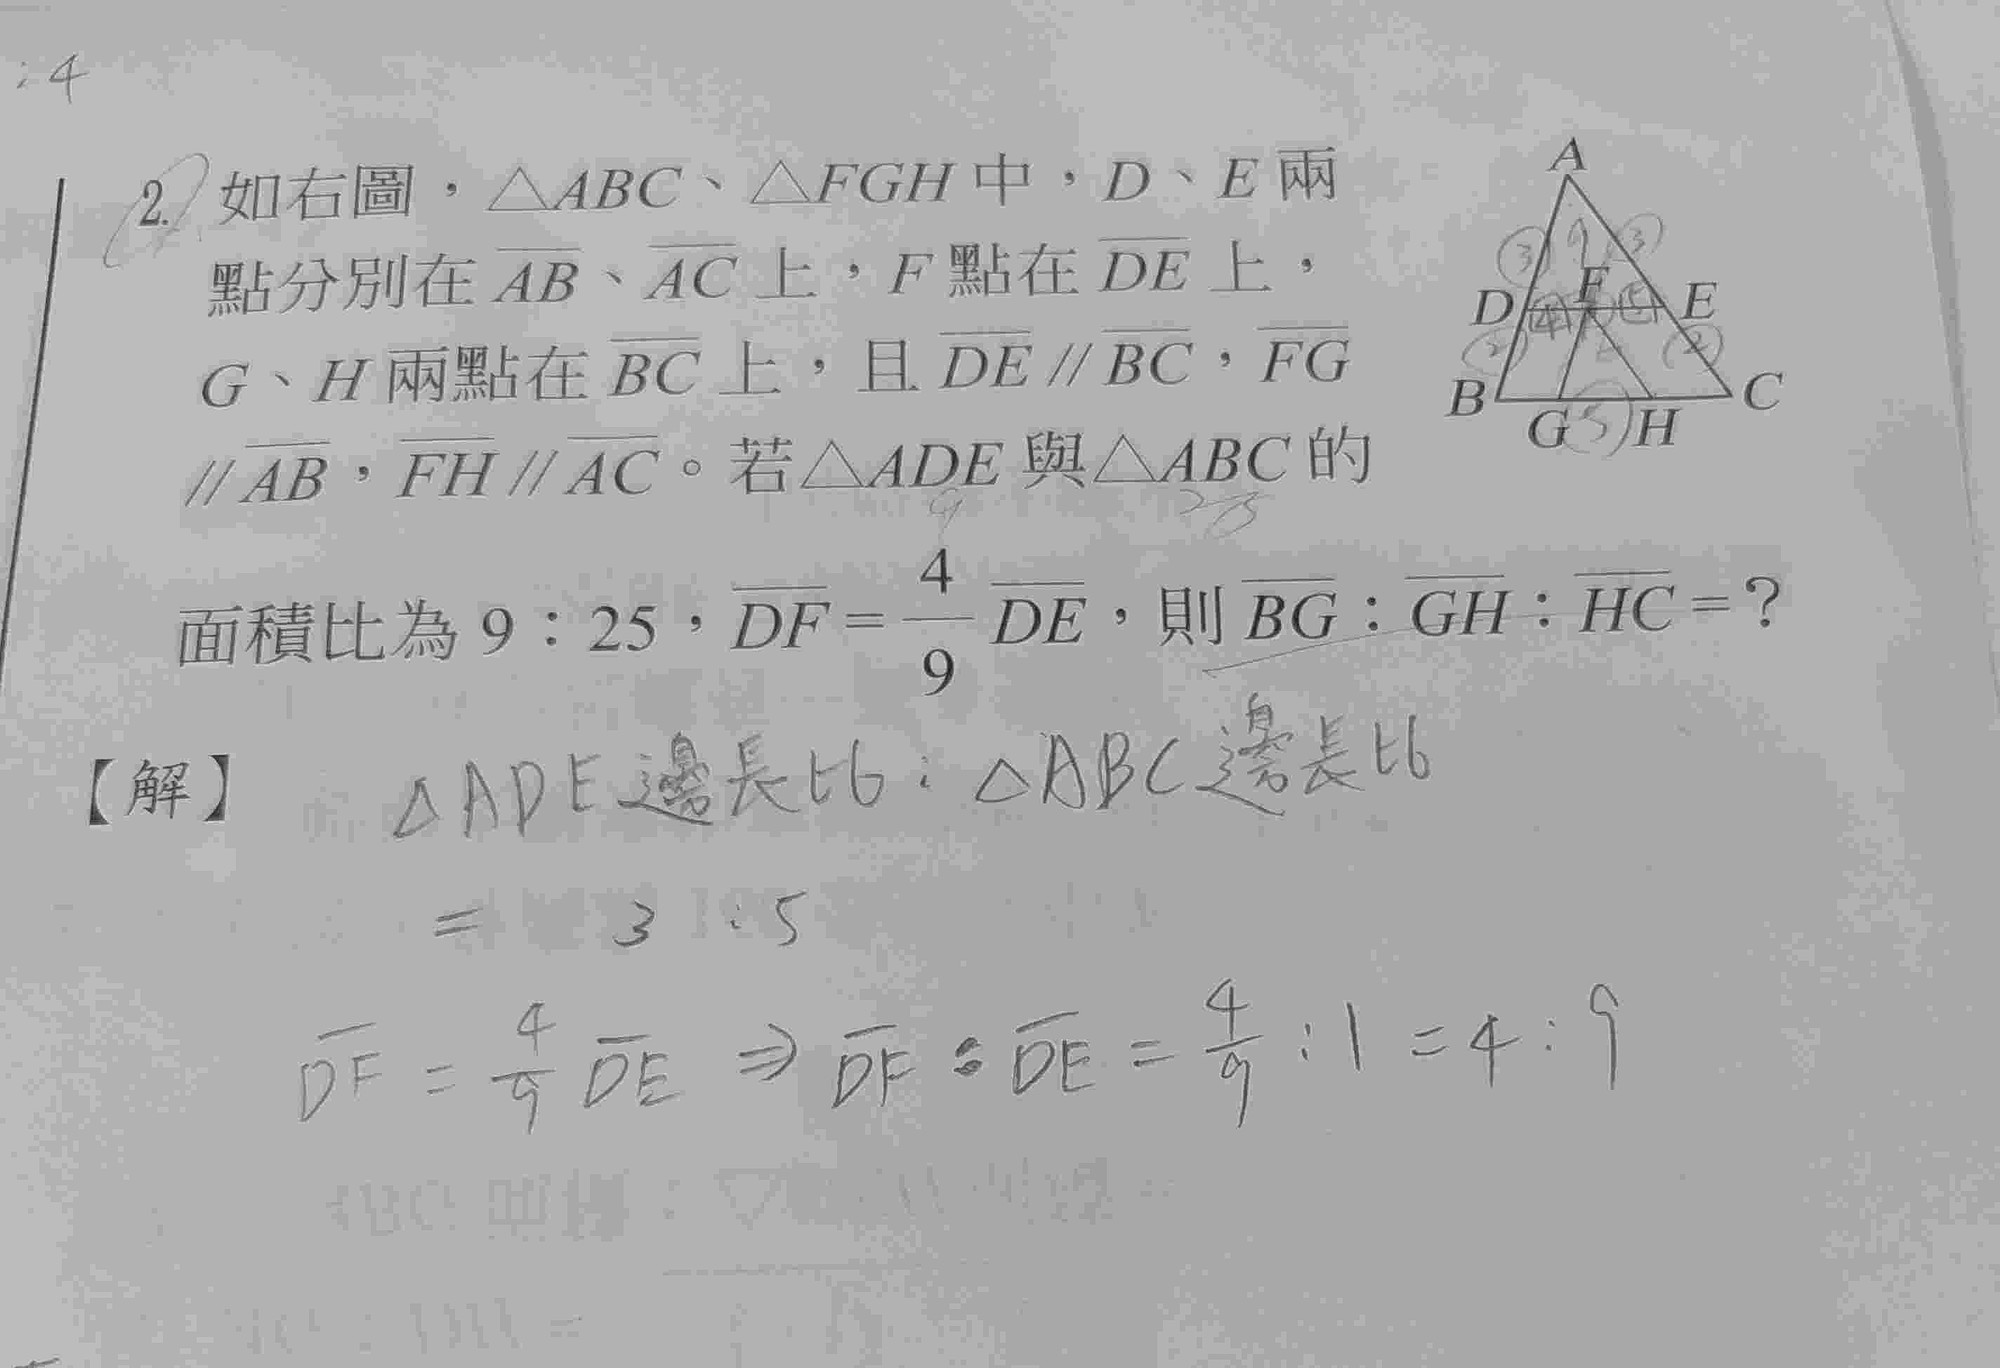 :4
2. 如右圖，△ABC、△FGH中，D、E兩
點分別在AB、AC上，F點在DE上，
G、H兩點在BC上，且DE∥BC，FG
∥AB，FH∥AC。若△ADE與△ABC的
9 25
面積比為9：25，DF=4/9 DE，則BG：GH：HC=？
A
3 9 3
D 4 F 5 E
2 2
B G 5 H C
【解】 △ADE邊長比：△ABC邊長比
= 3 : 5
DF = 4/9 DE ⇒ DF : DE = 4/9 : 1 = 4 : 9